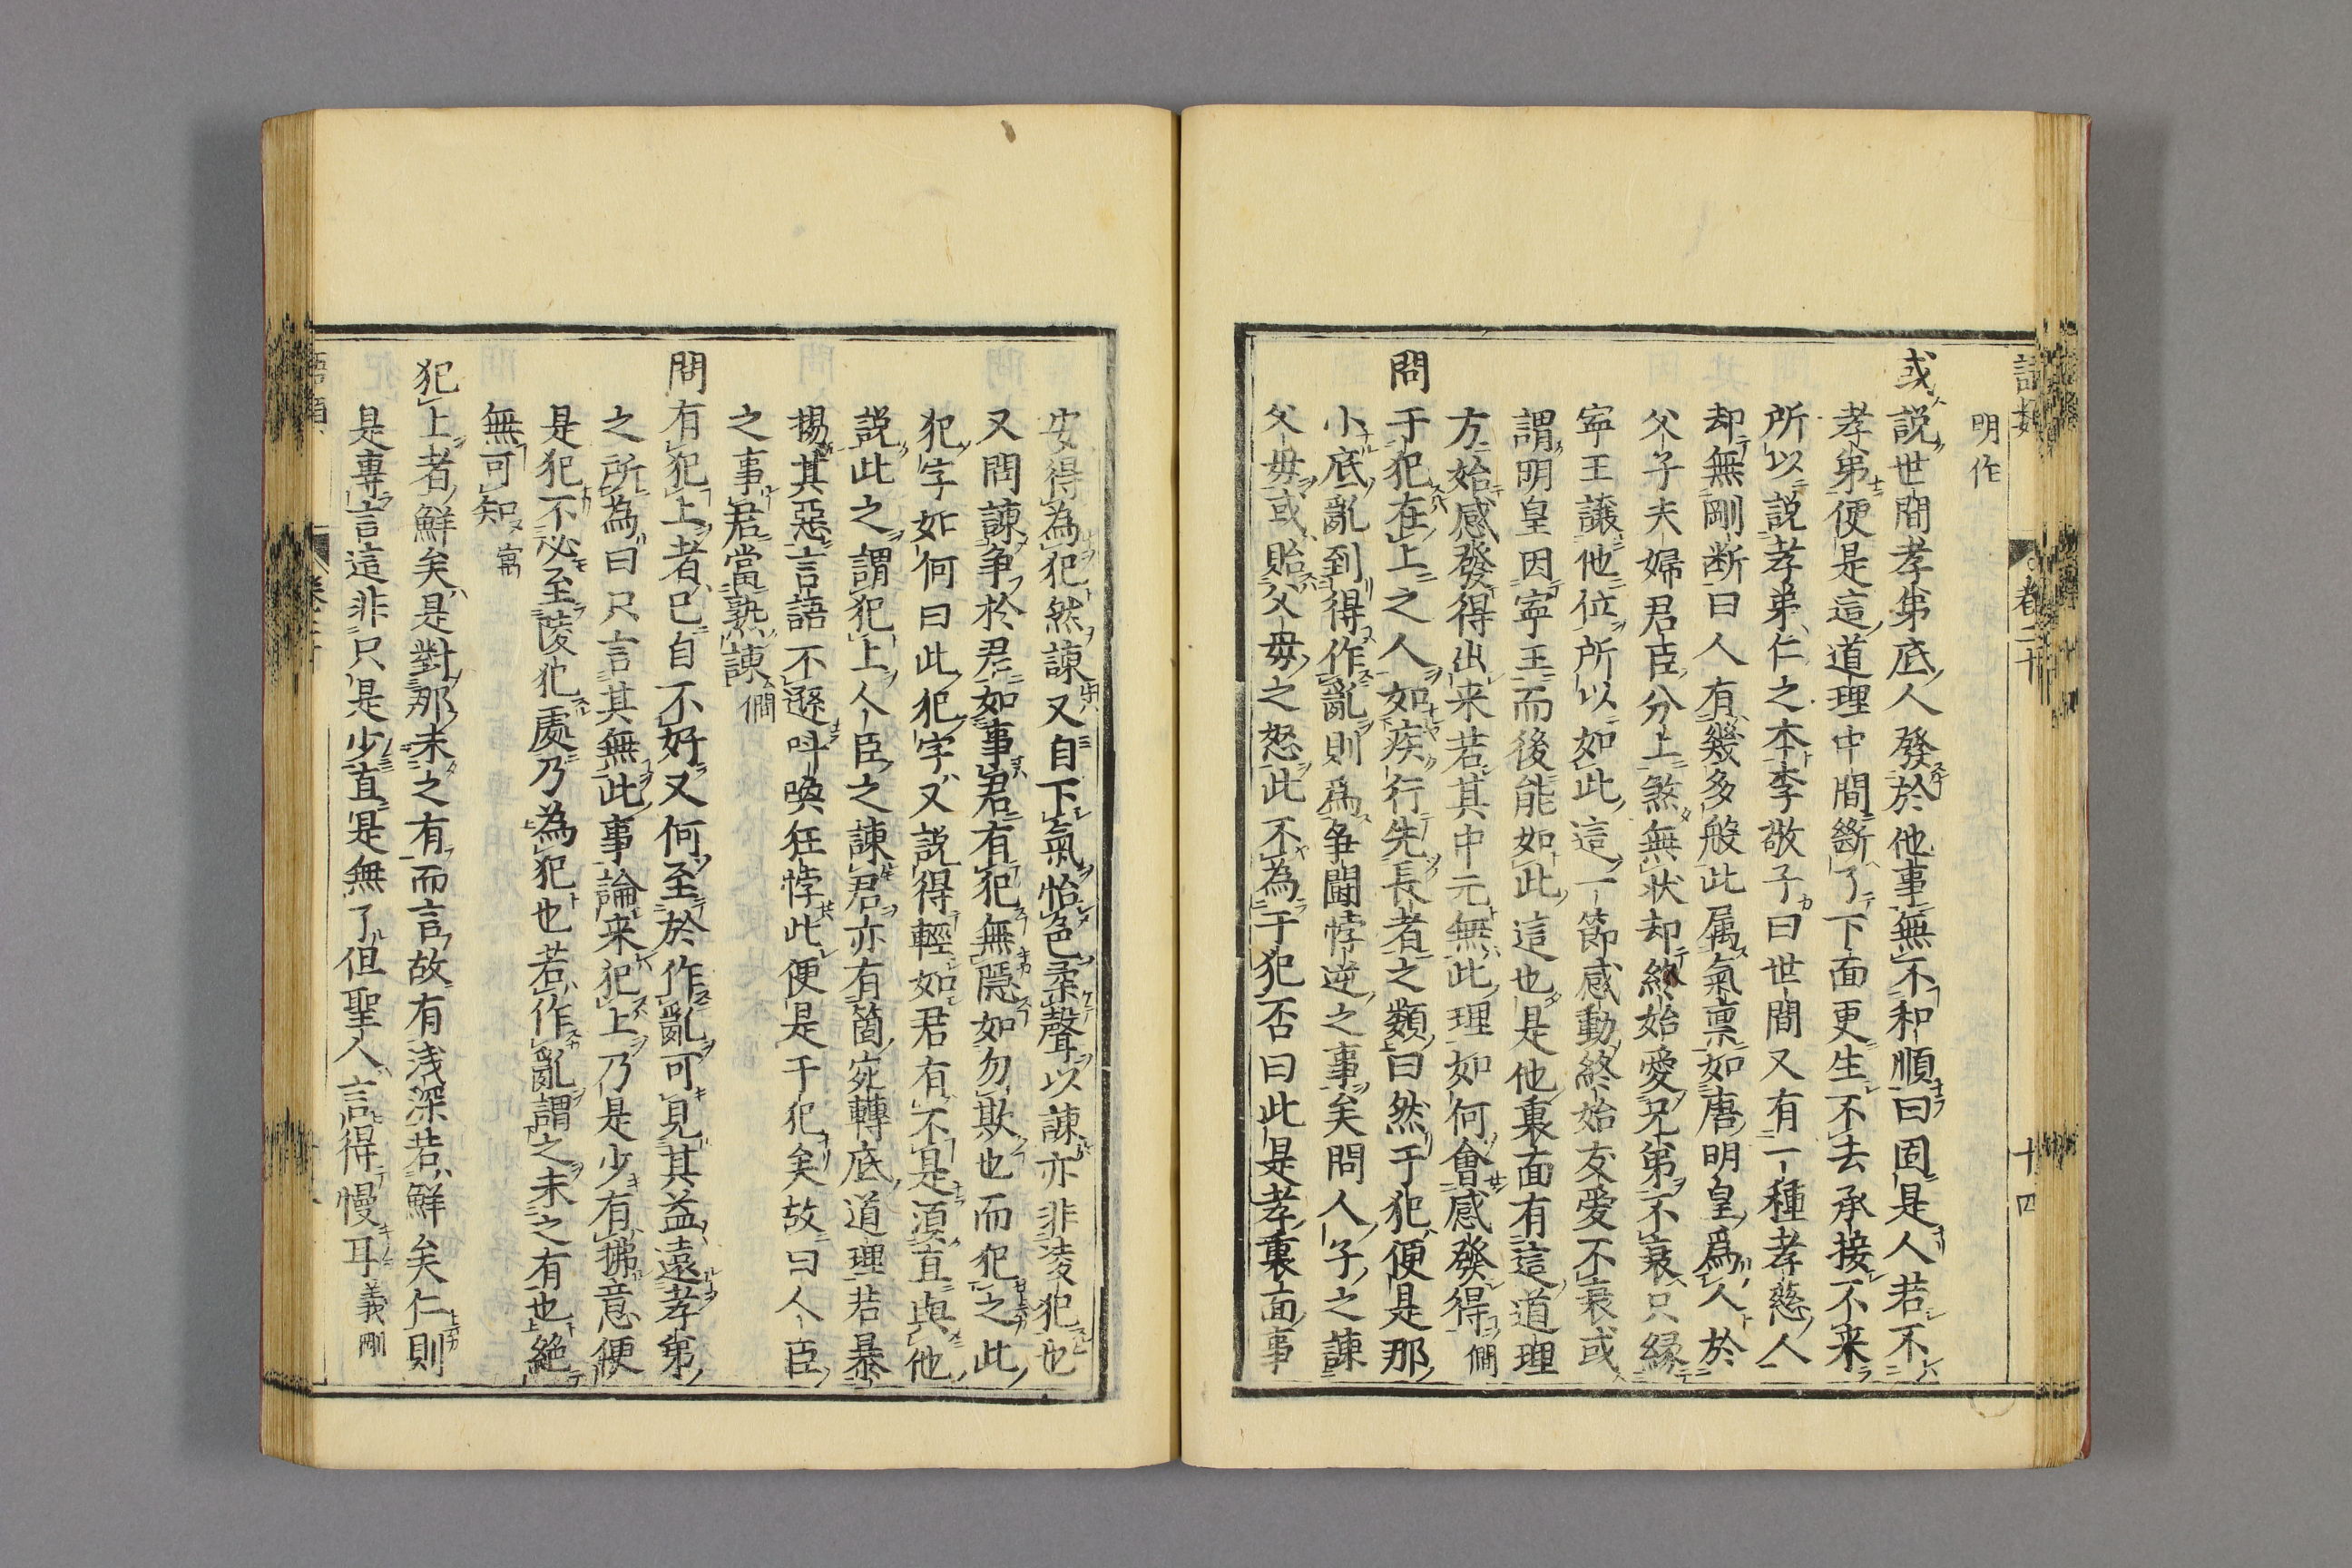 語類
卷二十
十四
明作
或説世間孝弟底人發於他事無不和順曰固是人若不
孝弟便是這道理中間斷了下面更生不去承接不来
所以説孝弟仁之本李敬子曰世間又有一種孝慈人
却無剛断曰人有幾多般此属氣禀如唐明皇爲人於
父子夫婦君臣分上煞無状却終始愛兄弟不衰只縁
寧王讓他位所以如此這一節感動終始友愛不衰或
謂明皇因寧王而後能如此這也是他裏面有這道理
方始感發得出来若其中元無此理如何會感發得 僩
問于犯在上之人如疾行先長者之類曰然于犯便是那
小底亂到得作亂則爲争闘悖逆之事矣問人子之諫
父母或貽父母之怒此不為干犯否曰此是孝裏面事
安得為犯然諫又自下氣怡色柔聲以諫亦非凌犯也
又問諫争於君如事君有犯無隠如勿欺也而犯之此
犯字如何曰此犯字又説得輕如君有不是須直與他
説此之謂犯上人臣之諫君亦有箇宛轉底道理若暴
揚其惡言語不遜叫喚狂悖此便是干犯矣故曰人臣
之事君當熟諫 僩
問有犯上者已自不好又何至於作亂可見其益遠孝弟
之所為曰只言其無此事論来犯上乃是少有拂意便
是犯不必至陵犯處乃為犯也若作亂謂之未之有也絶
無可知 㝢
犯上者鮮矣是對那未之有而言故有浅深若鮮矣仁則
是專言這非只是少直是無了但聖人言得慢耳 義剛